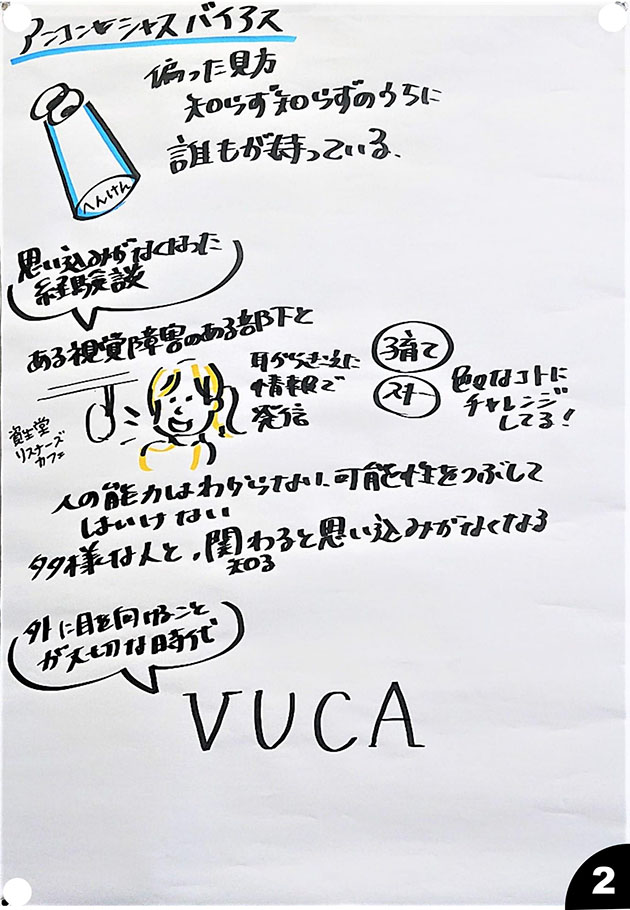 アンコンセシャスバイアス
偏った見方
知らず知らずのうちに
誰もが持っている、
へんけん
思い込みがなくなった
経験談
ある視覚障害のある部下と
耳からきこえた
情報で
発信
資生堂
リスナーズ
カフェ
子育て
スキー
色々なコトに
チャレンジ
してる！
人の能力はわからない、可能性をつぶして
はいけない
多様な人と、関わると思い込みがなくなる
知る
外に目を向けること
が大切な時代
VUCA
2